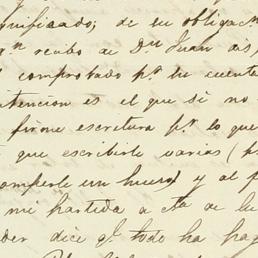 gnificado; de su obligac
recibo de Dn Juan
comprobado pr. su cuenta
ntencion es el que si no
firme escritura pr. lo que
que escribirle varias (p
omperle un hueso) y al p
mi partida a
der dice q. todo ha